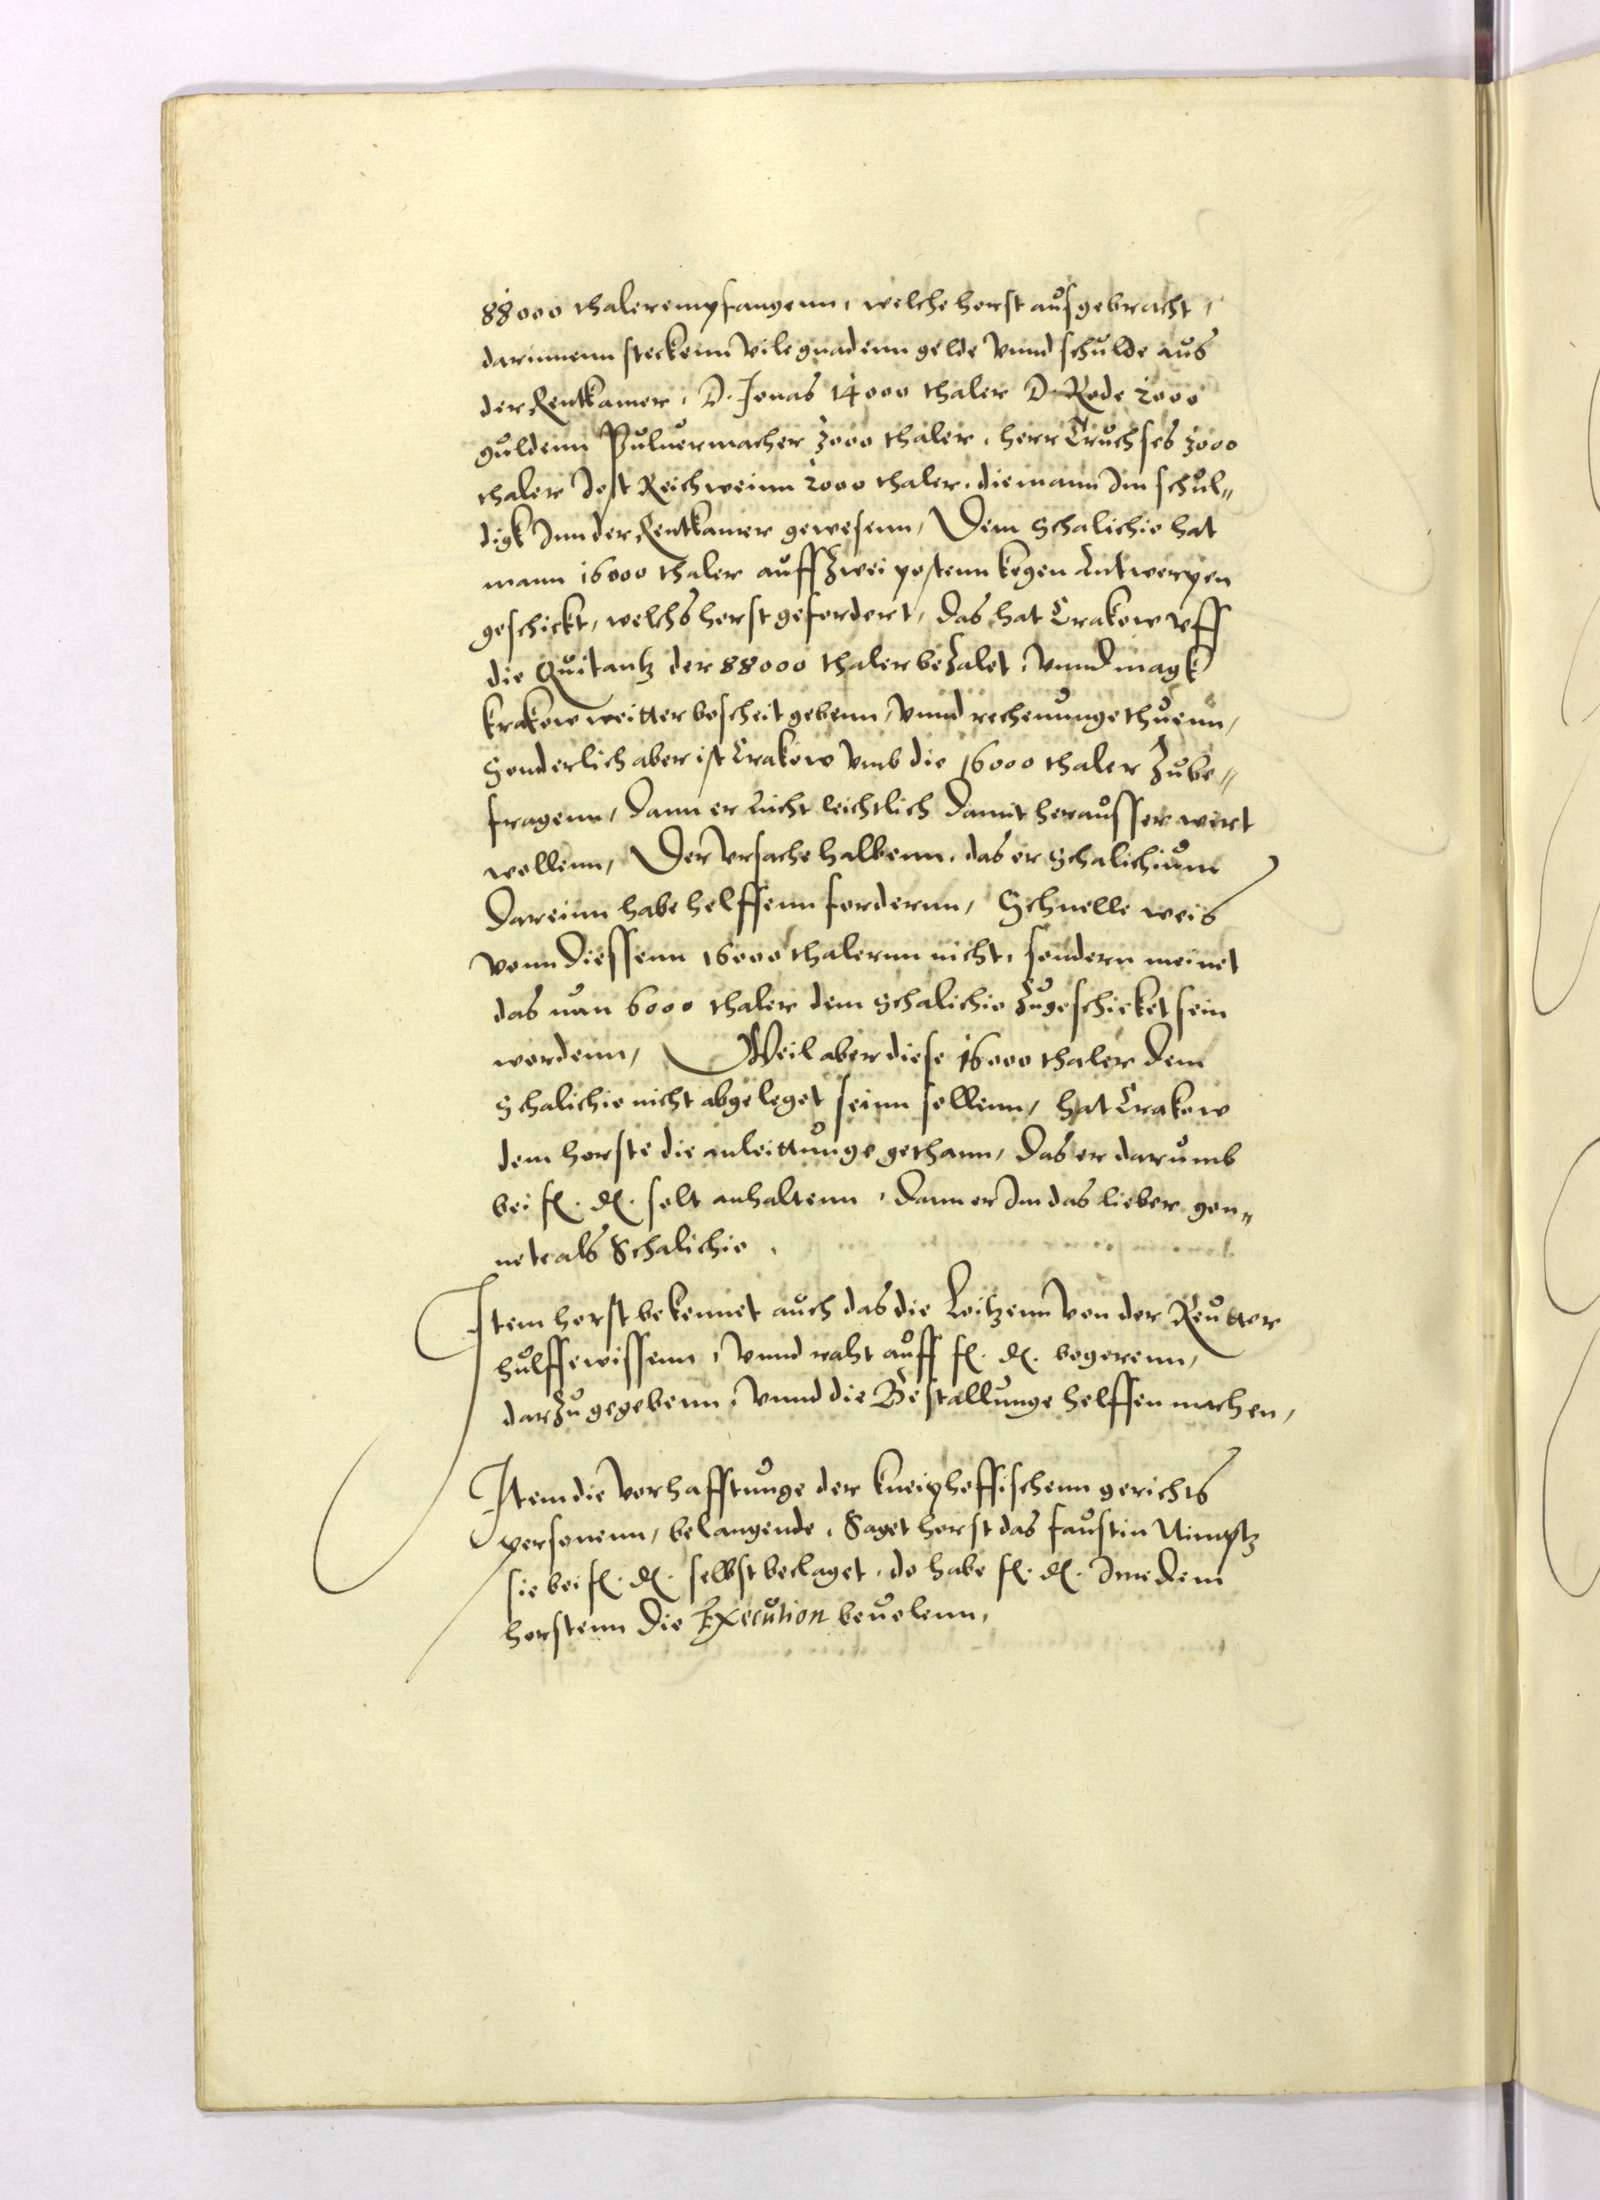 88000 thaler empfangenn, welche horst aufgebracht,
darinnenn steckenn vile gnadenn gelde vnnd schulde aus
der Rentkamer, D. Jonas 14000 thaler D. Rode 2000
guldenn Puluermacher 3000 thaler, herr Truchses 3000
thaler Jost Reichweinn 2000 thaler, die mann Im schul„
digk Inn der Rentkamer gewesenn, Dem Schalichio hat
mann 16000 thaler auff zwei postenn kegen Antwerpen
geschickt, welchs horst gefordert, das hat Crakow vff
die Quitantz der 88000 thaler bezalet, vnnd magk
Krakow weitter bescheit gebenn, vnnd rechenunge thuenn,
Sonderlich aber ist Crakow vmb die 16000 thaler zube„
fragenn, dann er nicht leichtlich damit herausser wert
wollenn, Der vrsache halbenn, das er Schalichium
dareinn habe helffenn fordernn, Schnelle weis
vonn diessenn 16000 thalernn nicht, sondern meinet
das nun 6000 thaler dem Schalichio zugeschicket sein
wordenn, Weil aber diese 16000 thaler dem
Schalichio nicht abgeleget seinn sollenn, hat Crakow
dem horste die anleittunge gethann, das er darumb
bei f. d. solt anhaltenn, dann er Im das lieber gon„
nete als Schalichio,
Item horst bekennet auch das die Loitzenn von der Reutter
hulffe wissenn, vnnd raht auff f. d. begerenn,
darzu gegebenn, vnnd die Bestallunge helffen machen,
Item die vorhafftunge der kneiphoffischenn gerichts
personenn, belangende, Saget horst das faustin Nimptz
sie bei f. d. selbst beclaget, do habe f. d. Ime dem
horstenn die Execution beuolenn,